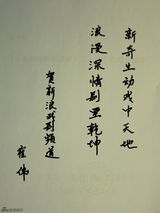 新奇生动戏中天地
浪漫深情剧里乾坤
贺新浪戏剧频道
崔伟